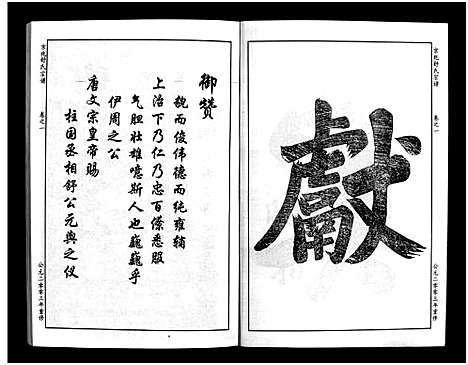 京兆舒氏宗谱
卷之一
献
公元二零零三年重修
京兆舒氏宗谱
卷之一
御赞
貌而俊伟德而纯雍辅
上治下乃仁乃忠百僚悉服
气胆壮雄噫斯人也巍巍乎
伊周之公
唐文宗皇帝赐
柱国丞相舒公元舆之仪